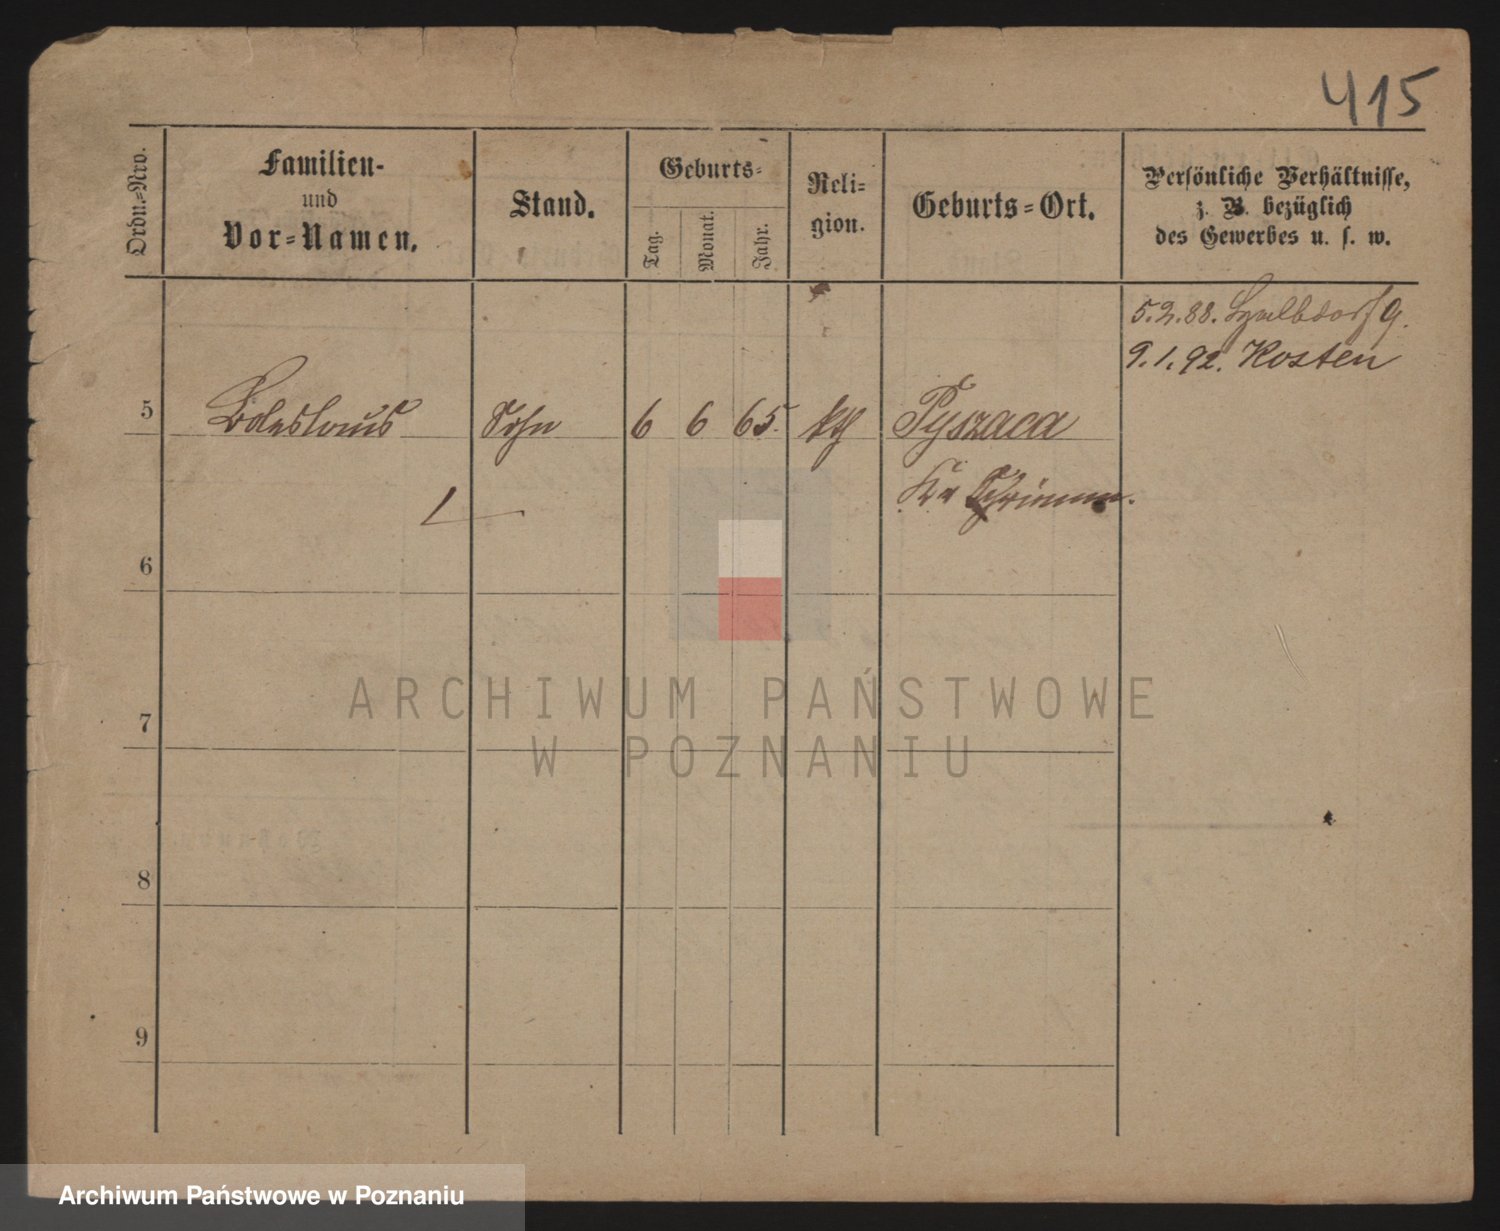 415
Ordn.-Nro.
Familien-
und
Vor-Namen.
Stand.
Geburts-
Tag.
Monat.
Jahr.
Reli-
gion.
Geburts-Ort.
Persönliche Verhältnisse,
z. B. bezüglich
des Gewerbes u. s. w.
5.2.88.
9.1.92. Kosten
5 Boleslaus Sohn 6 6 65. kth Pyszaca
Kr Schrimm.
6
7
8
9
ARCHIWUM PAŃSTWOWE
W POZNANIU
Archiwum Państwowe w Poznaniu